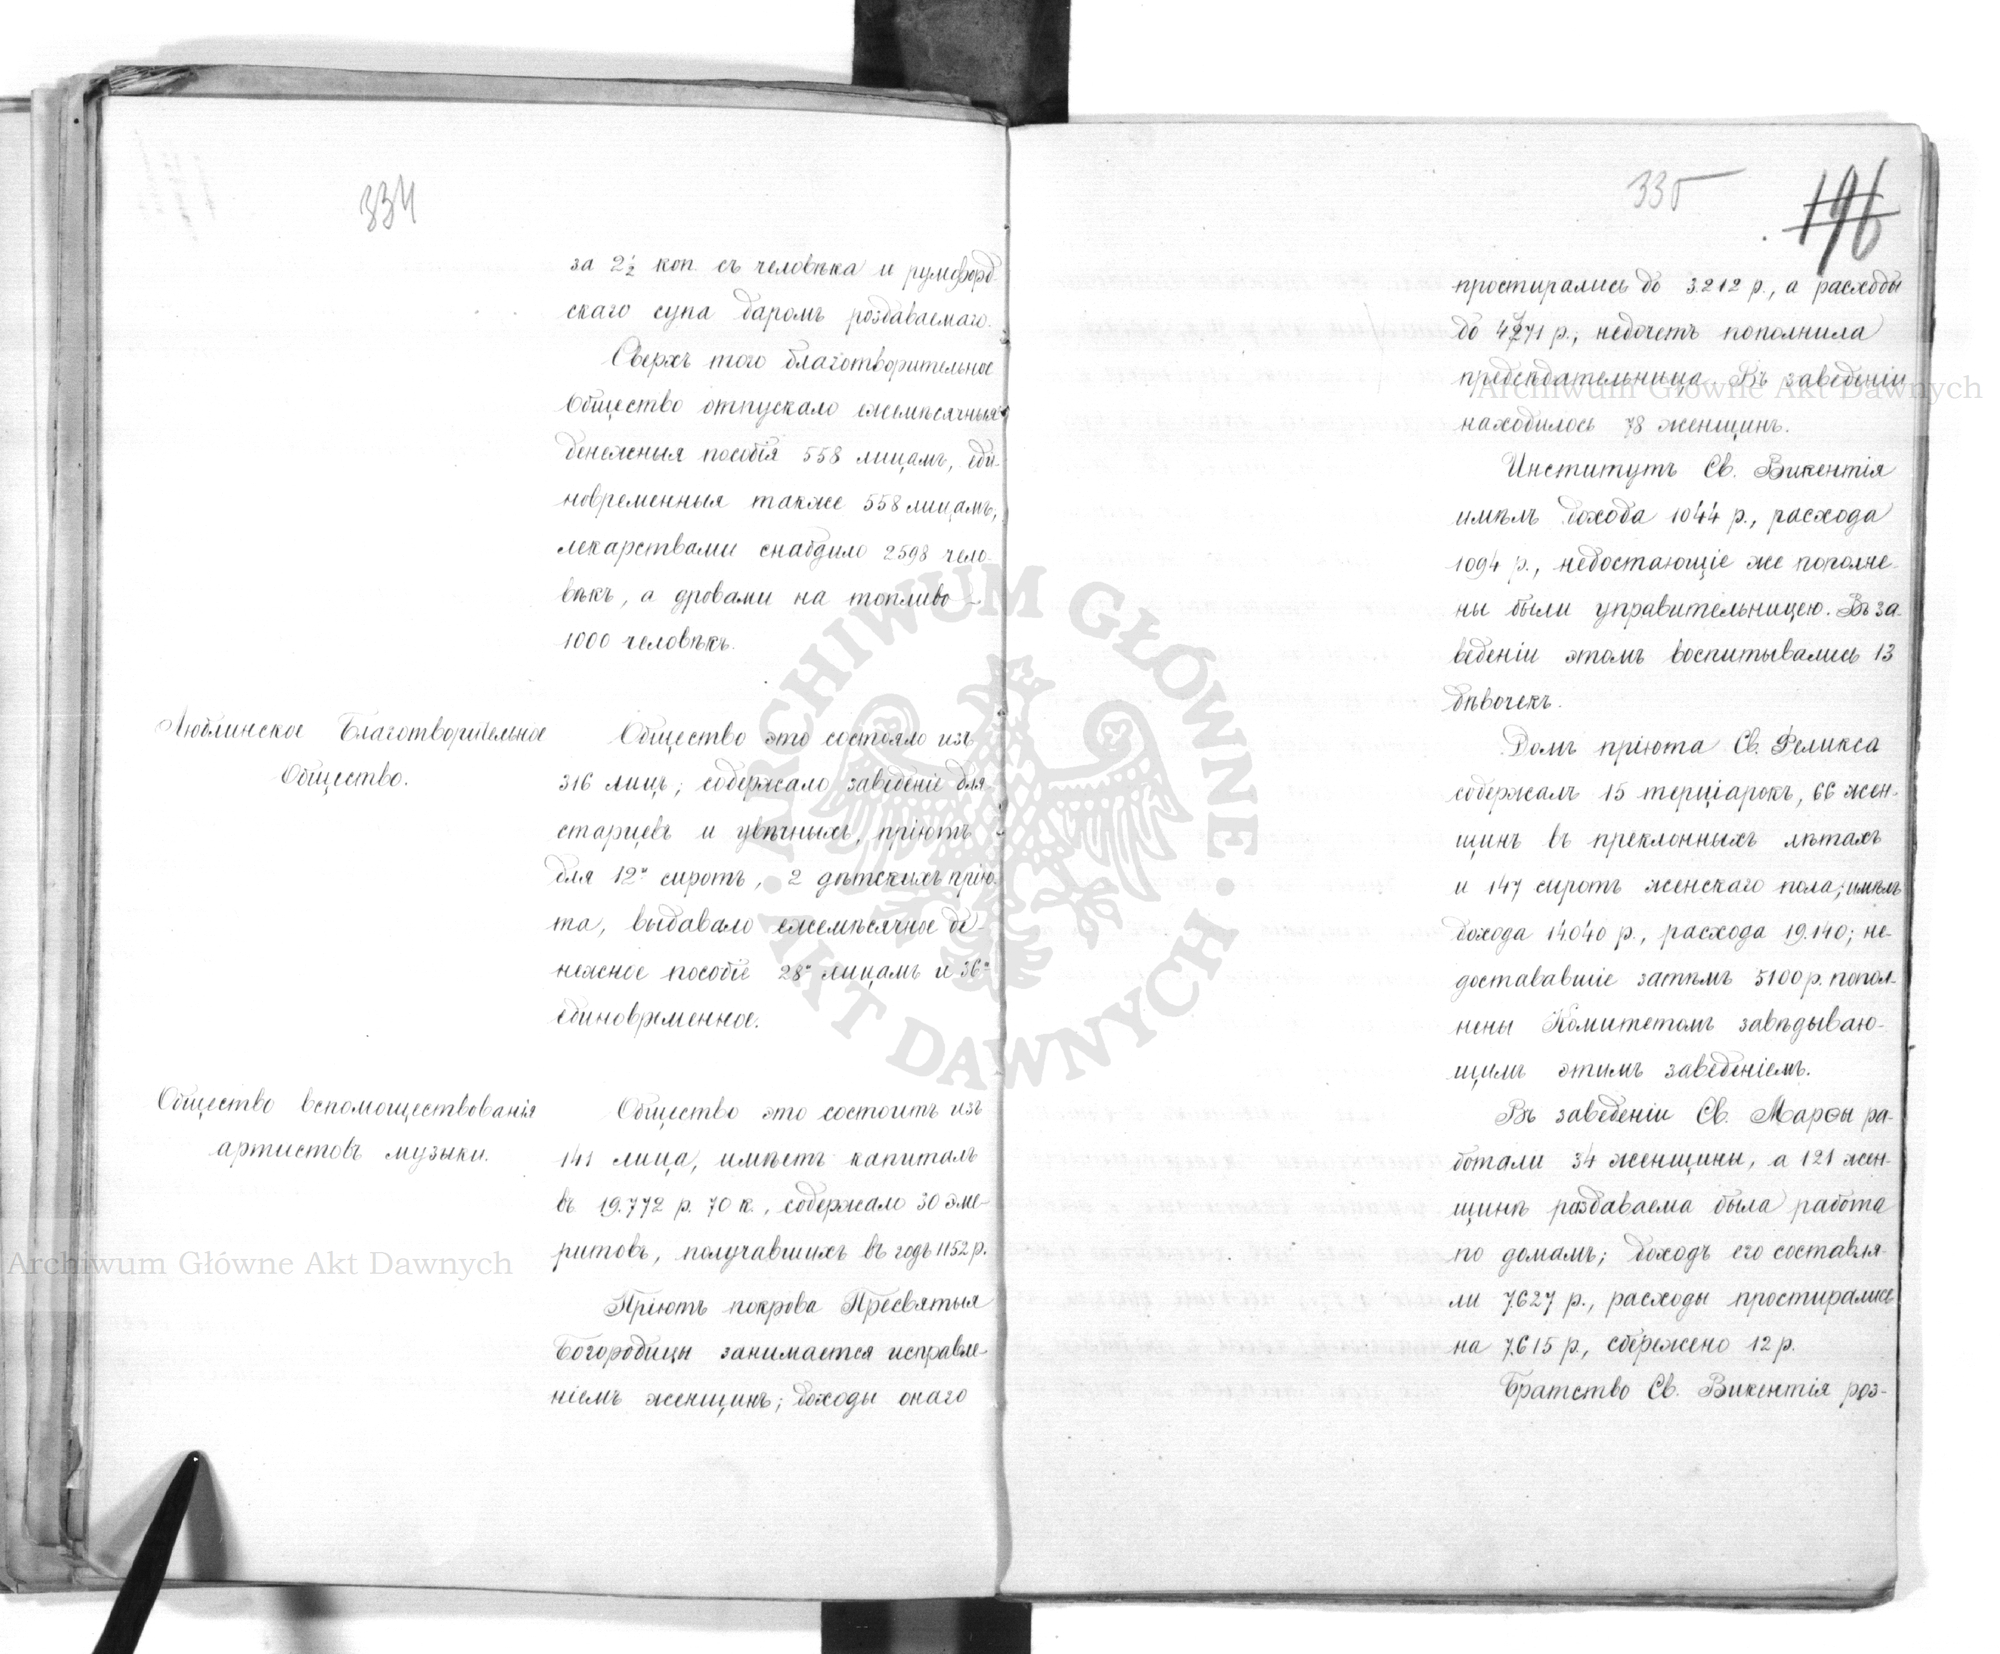 334
за 2½ коп. съ человѣка и румфорд-
скаго супа даромъ роздаваемаго.
Сверхъ того благотворительное
Общество отпускало ежемѣсячныя
денежныя пособія 558 лицамъ, еди-
новременныя также 558 лицамъ,
лекарствами снабдило 2598 чело-
вѣкъ, а дровами на топливо –
1000 человѣкъ.
Люблинское Благотворительное
Общество.
Общество это состояло изъ
316 лицъ; содержало заведеніе для
старцевъ и увѣчныхъ, пріютъ
для 12и сиротъ, 2 дѣтскихъ прію-
та, выдавало ежемѣсячное де-
нежное пособіе 28и лицамъ и 36и
единовременное.
Общество вспомоществованія
артистовъ музыки.
Общество это состоитъ изъ
141 лица, имѣетъ капиталъ
въ 19.772 р. 70 к., содержало 30 эме-
ритовъ, получавшихъ въ годъ 1152 р.
Пріютъ покрова Пресвятыя
Богородицы занимается исправле-
ніемъ женщинъ; доходы онаго
335
196
простирались до 3.212 р., а расходы
до 4271 р.; недочетъ пополнила
предсѣдательница. Въ заведеніи
находилось 78 женщинъ.
Институтъ Св. Викентія
имѣлъ дохода 1044 р., расхода
1094 р., недостающіе же пополне-
ны были управительницею. Въ за-
веденіи этомъ воспитывались 13
дѣвочекъ.
Домъ пріюта Св. Феликса
содержалъ 15 терціарокъ, 66 жен-
щинъ въ преклонныхъ лѣтахъ
и 147 сиротъ женскаго пола; имѣлъ
дохода 14040 р., расхода 19.140; не-
достававшіе затѣмъ 5100 р. попол-
нены Комитетомъ завѣдываю-
щимъ этимъ заведеніемъ.
Въ заведеніи Св. Марѳы ра-
ботали 34 женщины, а 121 жен-
щинѣ раздаваема была работа
по домамъ; доходъ его составля-
ли 7.627 р., расходы простирались
на 7.615 р., сбережено 12 р.
Братство Св. Викентія роз-
Archiwum Główne Akt Dawnych
Archiwum Główne Akt Dawnych
ARCHIWUM GŁÓWNE
AKT DAWNYCH